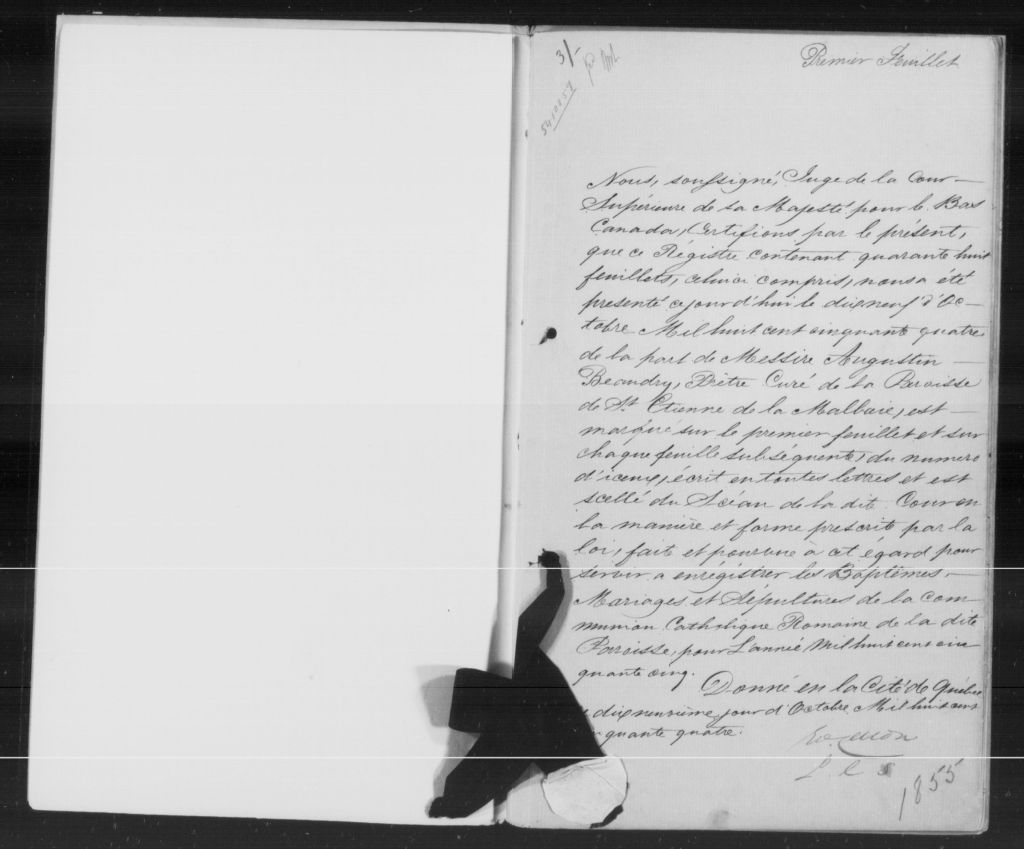 Premier Feuillet
3/-
5410057
Nous, soussigné, Juge de la Cour
Supérieure de Sa Majesté pour le Bas
Canada, Certifions par le présent,
que ce Régistre contenant quarante huit
feuillets, celui ci compris, nous a été
presenté ce jour d'hui le dixneuf d'Oc-
tobre Mil huit cent cinquante quatre
de la part de Messire Augustin
Beaudry, Prêtre Curé de la Paroisse
de St. Etienne de la Malbaie, est
marqué sur le premier feuillet et sur
chaque feuille subséquente, du numero
d'iceux, écrit en toutes lettres et est
scellé du Scéau de la dite Cour en
la manière et forme prescrite par la
loi, fait et pourvue à cet égard pour
servir a enrégistrer les Baptêmes,
Mariages et Sépultures de la Com
munion Catholique Romaine de la dite
Paroisse, pour L'année Mil huit cent cin
quante cinq.
Donné en la Cité de Québec
dixneuvième jour d'Octobre Mil huit cent
quante quatre.
1855